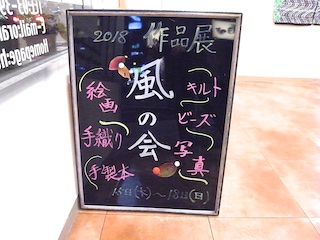 2018 作品展
風の会
キルト
ビーズ
写真
絵画
手織り
手製本
15日(木)～18日(日)